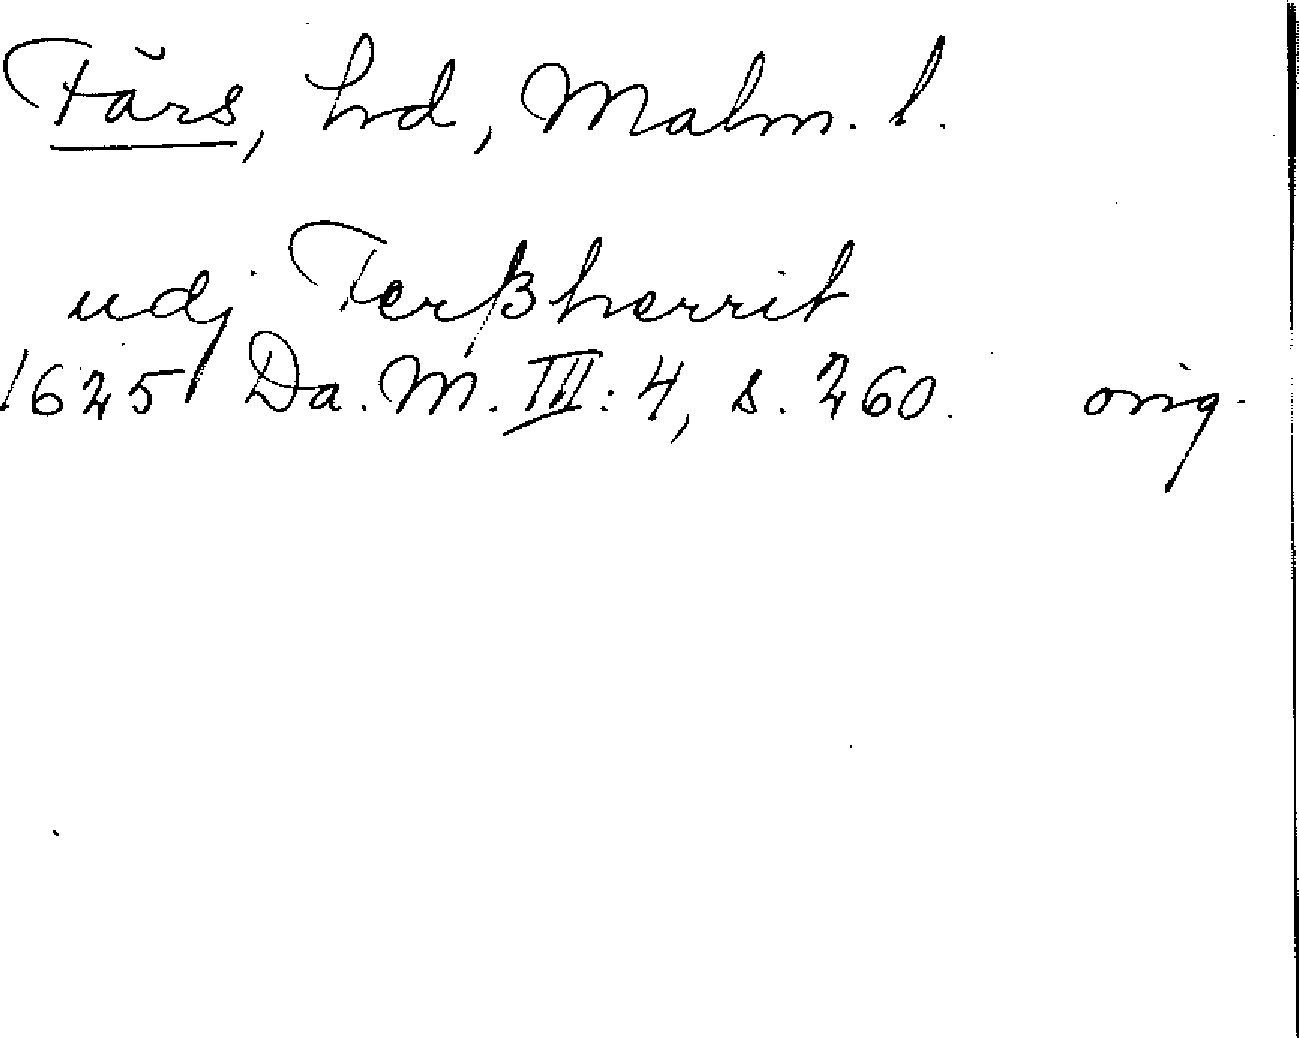 Färs, hd, Malm. l.
udj Ferßherrit
1625 Da. M. III: 4, s. 260. orig.